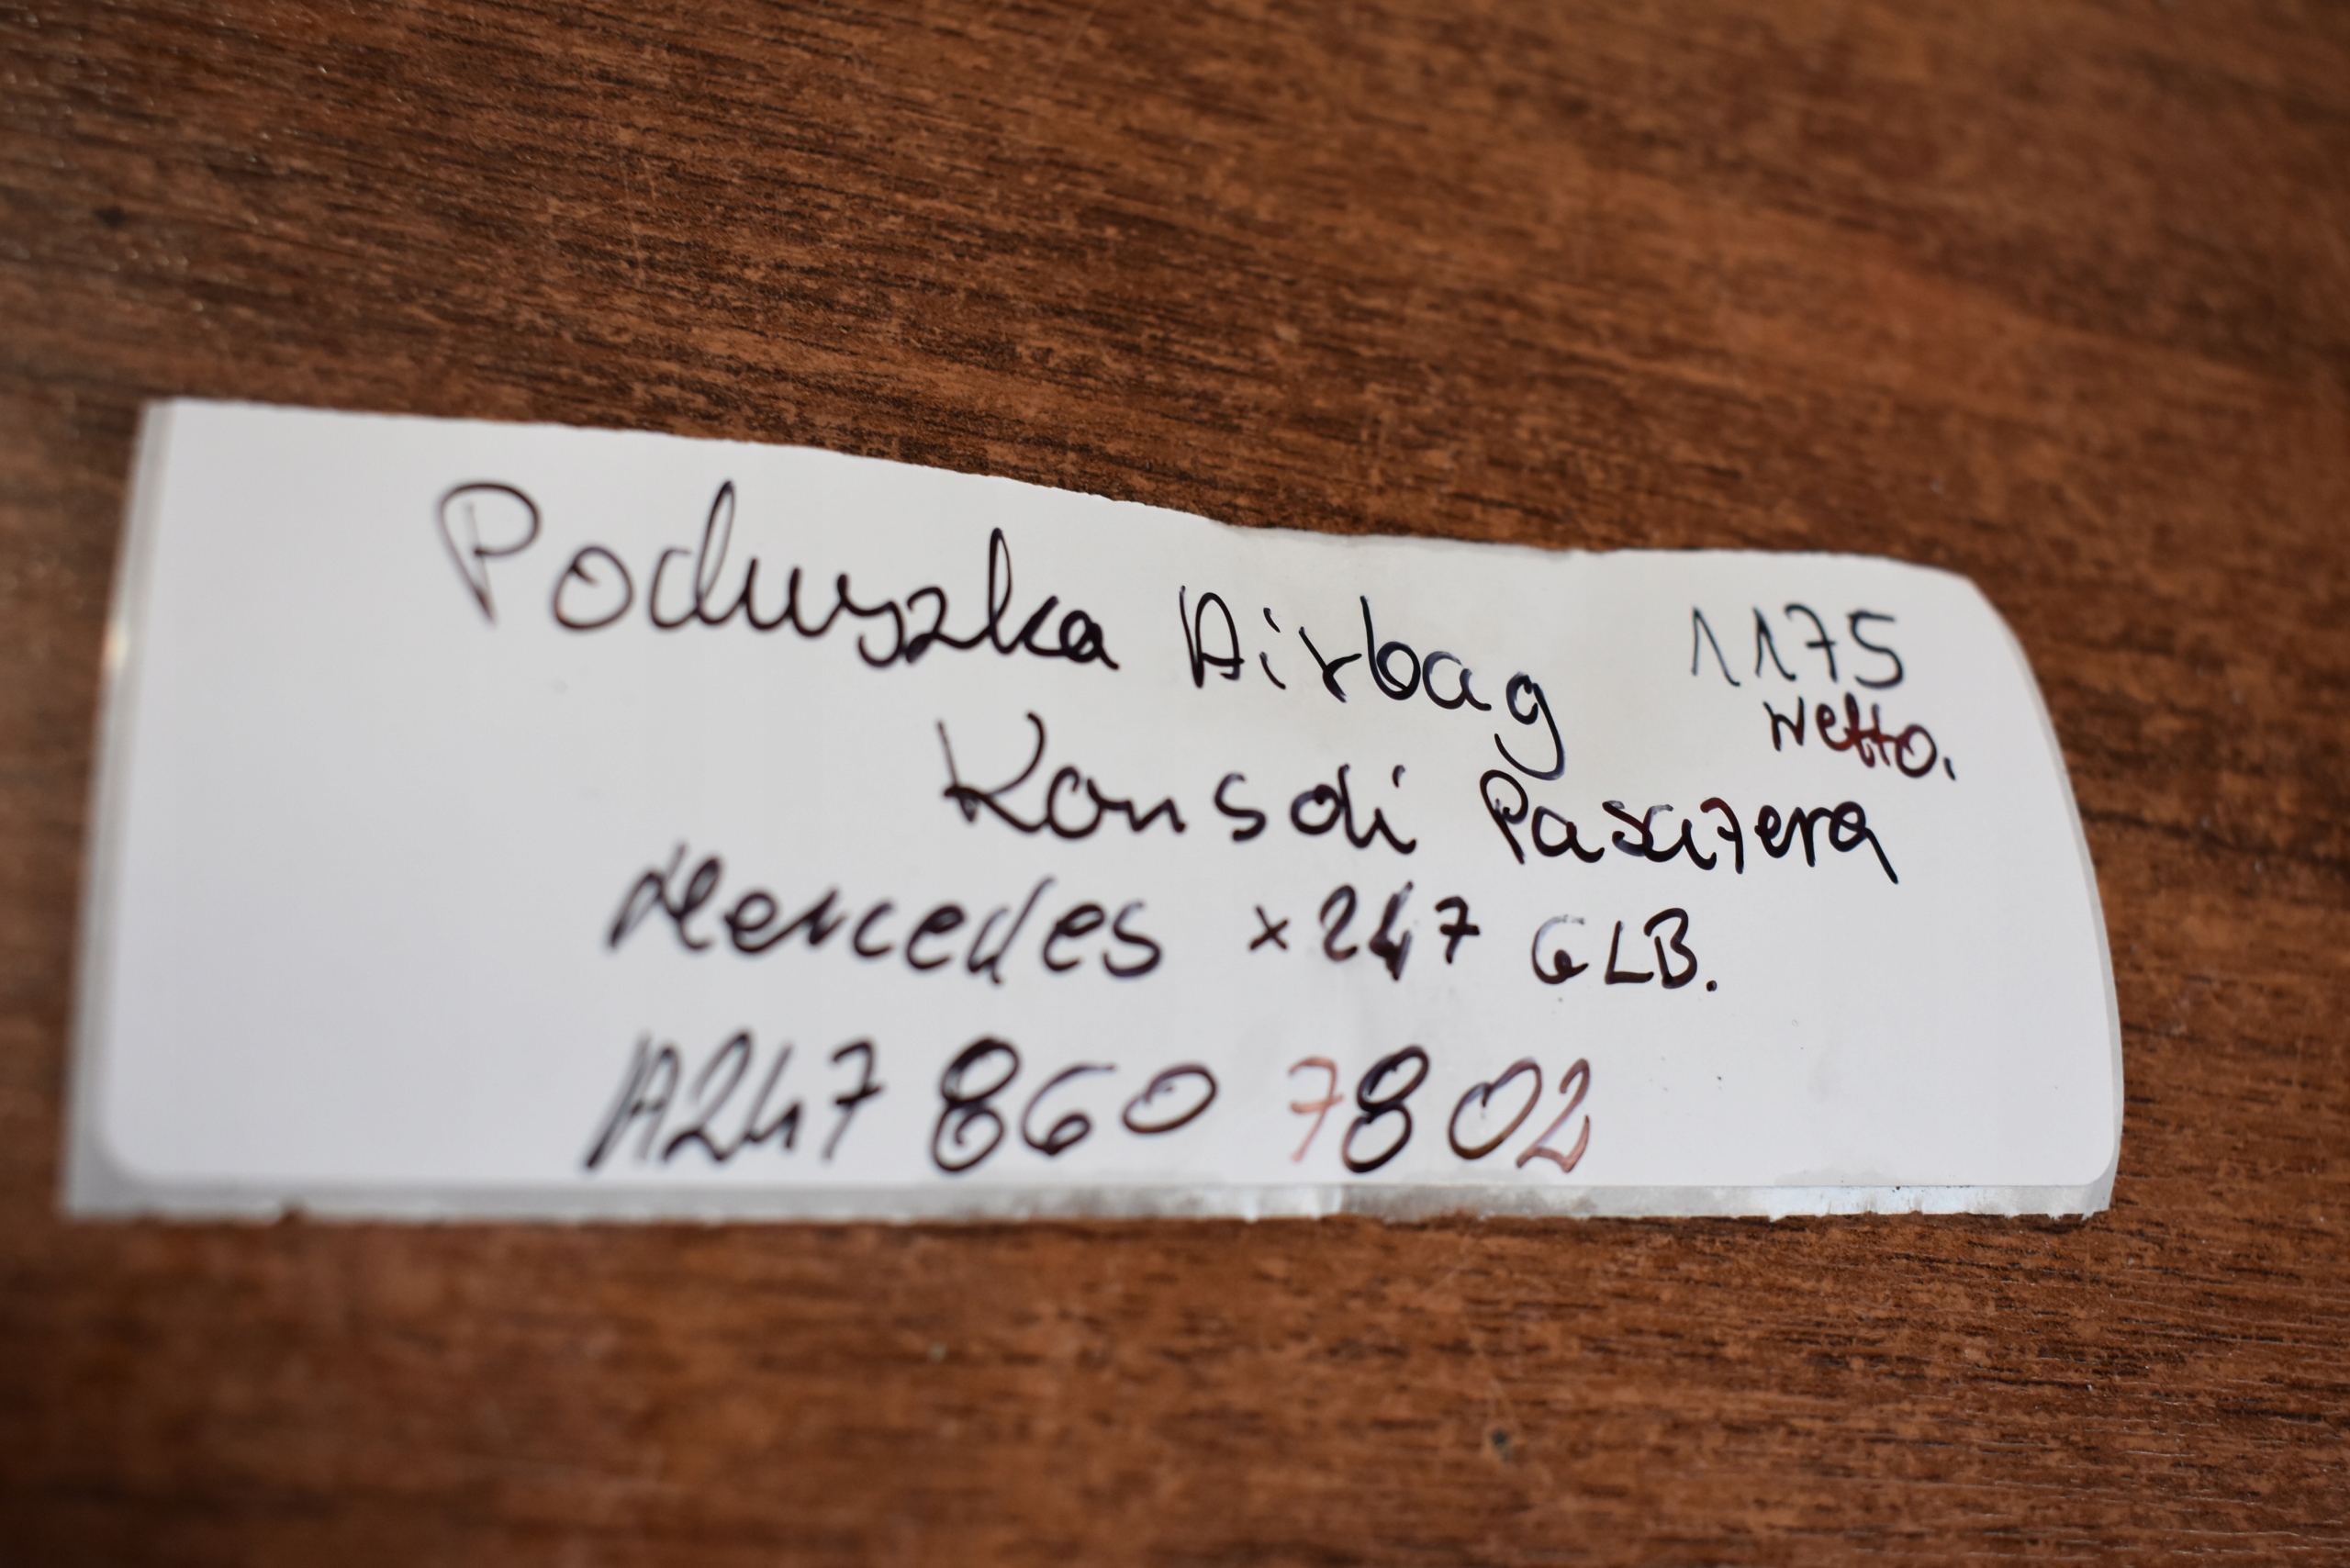 Poduszka Airbag
1175
netto.
Konsoli Pasażera
Mercedes x247 GLB.
A247 860 7802